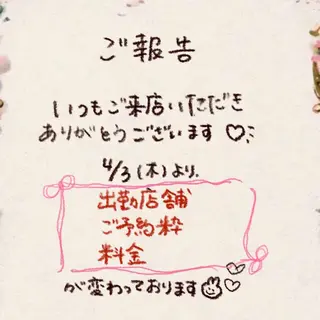 ご報告
いつもご来店いただき
ありがとうございます♡
4/3(木)より、
出勤店舗
ご予約粋
料金
が変わっております♡